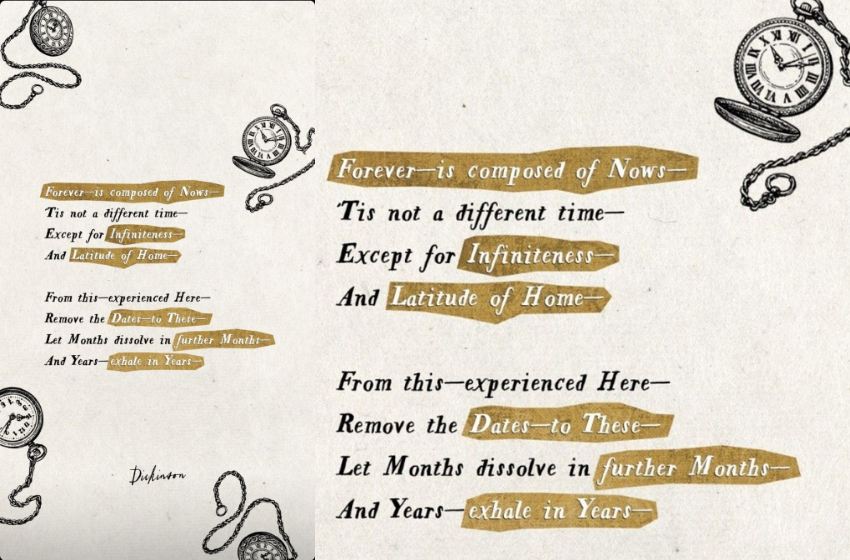 Forever—is composed of Nows—
'Tis not a different time—
Except for Infiniteness—
And Latitude of Home—
From this—experienced Here—
Remove the Dates—to These—
Let Months dissolve in further Months—
And Years—exhale in Years—
Dickinson
Forever—is composed of Nows—
'Tis not a different time—
Except for Infiniteness—
And Latitude of Home—
From this—experienced Here—
Remove the Dates—to These—
Let Months dissolve in further Months—
And Years—exhale in Years—